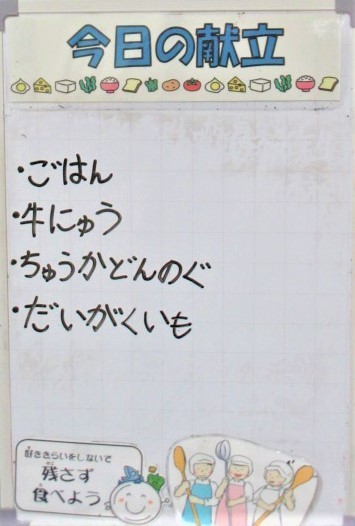 今日の献立
・ごはん
・牛にゅう
・ちゅうかどんのぐ
・だいがくいも
好ききらいをしないで
残さず
食べよう。